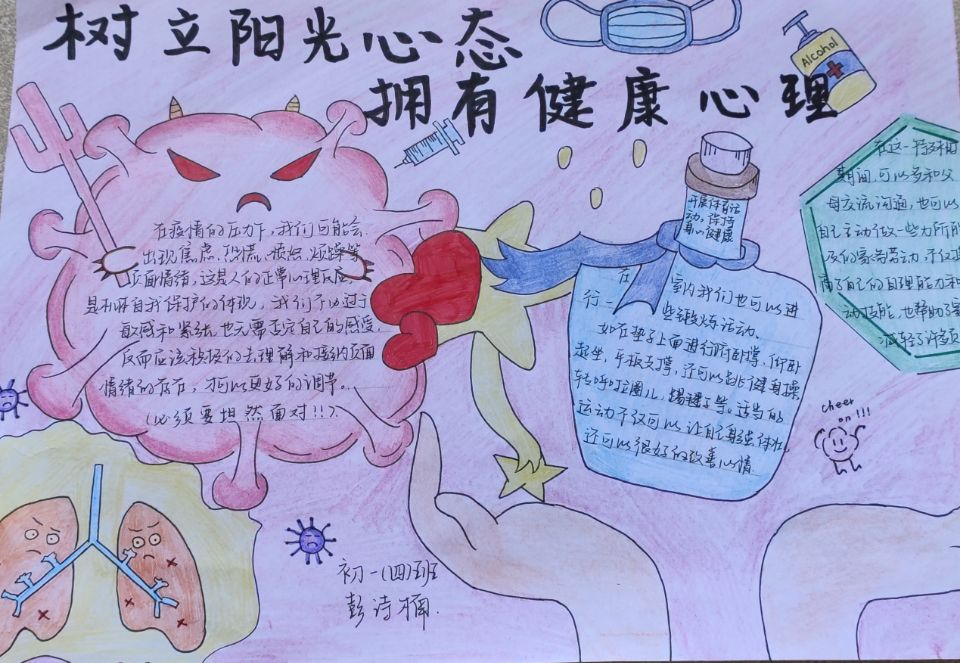 树立阳光心态
拥有健康心理
Alcohol
在疫情的压力下,我们可能会
出现焦虑、恐慌、愤怒、烦躁等
负面情绪,这是人们的正常心理反应,
是机体自我保护的体现,我们不必过于
敏感和紧张,也无需否定自己的感受,
反而应该积极的去理解和接纳负面
情绪的存在,才可以更好的调节。
(必须要坦然面对!!)
开展体育活
动,保持
身心健康
在 室内我们也可以进
行一些锻炼活动、
如在垫子上面进行俯卧撑、仰卧
起坐,平板支撑,还可以健身操
转呼啦圈儿,踢毽子等。适当的
运动不仅可以让自己身强体壮,
还可以很好的改善心情
在这一特殊
期间,可以多和父
母交流沟通,也可以
自己主动做一些力所能
及的家务劳动,不仅
高了自己的自理能力和
动技能,也帮助了
减轻了许多负
cheer
on!!!
初一(四)班
彭诗楠.